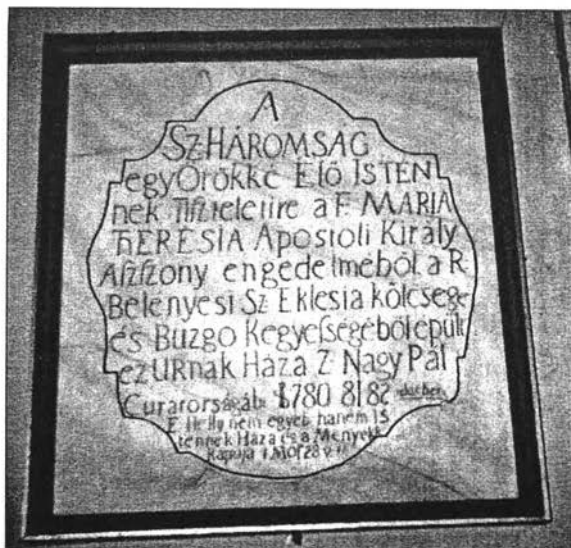 A
SZ HÁROMSÁG
egy Örökké Élő ISTEN
nek Tiſzteletire a F. MARIA
THERESIA Apostoli Király
Aſzſzony engedelméből a R
Belenyesi Sz Eklesia kölcsege
és Buzgo Kegyeſségeből épült
ez URnak Háza Z Nagy Pál
Curatorságáb. 1780 81 82
E Helly nem egyéb hanem IS
tennek Háza és a Menyekk
Kapuja I Moſ 28 v.